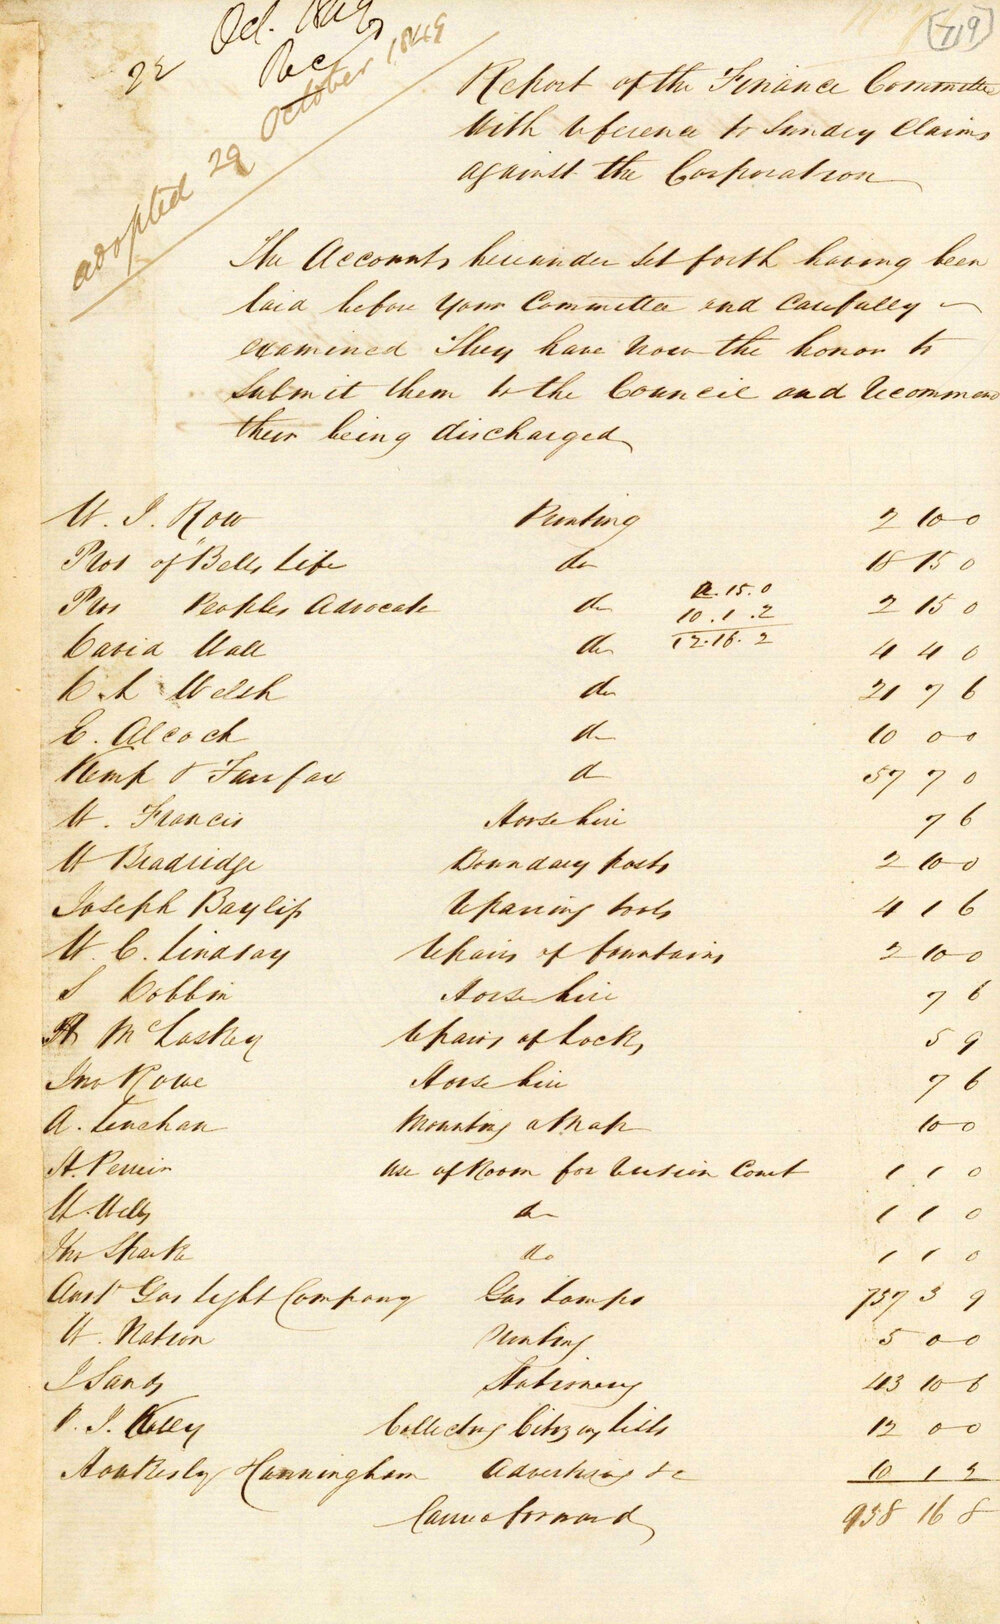 719
22
Rec
adopted 29 October 1849
Report of the Finance Committee
With reference to Sundry Claims
against the Corporation
The Accounts hereunder set forth having been
laid before Your Committee and Carefully
examined They have now the honor to
Submit them to the Council and recommend
their being discharged
W. J. Row Printing 2 10 0
Pros of Bells Life do 18 15 0
Pros Peoples Advocate do 2 15 0
2.15.0
10.1.2
12.16.2
David Wall do 4 4 0
Welsh do 21 7 6
E. Alcock do 10 0 0
Kemp & Fairfax do 57 7 0
W. Francis Horse hire 7 6
W Bradridge Boundary posts 2 10 0
Joseph Bayliss repairing tools 4 1 6
W. C. Lindsay repairs of fountains 2 10 0
S Dobbin Horse hire 7 6
McCloskey repairs of Locks 5 9
Jno Rowe Horse hire 7 6
A. Lenehan Mounting a Map 10 0
H. Perrier use of Room for revision Court 1 1 0
W. Wells do 1 1 0
Thos Spark do 1 1 0
Aust Gas light Company Gas Lamps 737 3 9
W. Nation Printing 5 0 0
J Sands Stationery 43 10 6
P. J. Kelly Collecting Citizens lists 12 0 0
Hawkesley & Cunningham Advertising &c 10 1 2
Carried forward 938 16 8